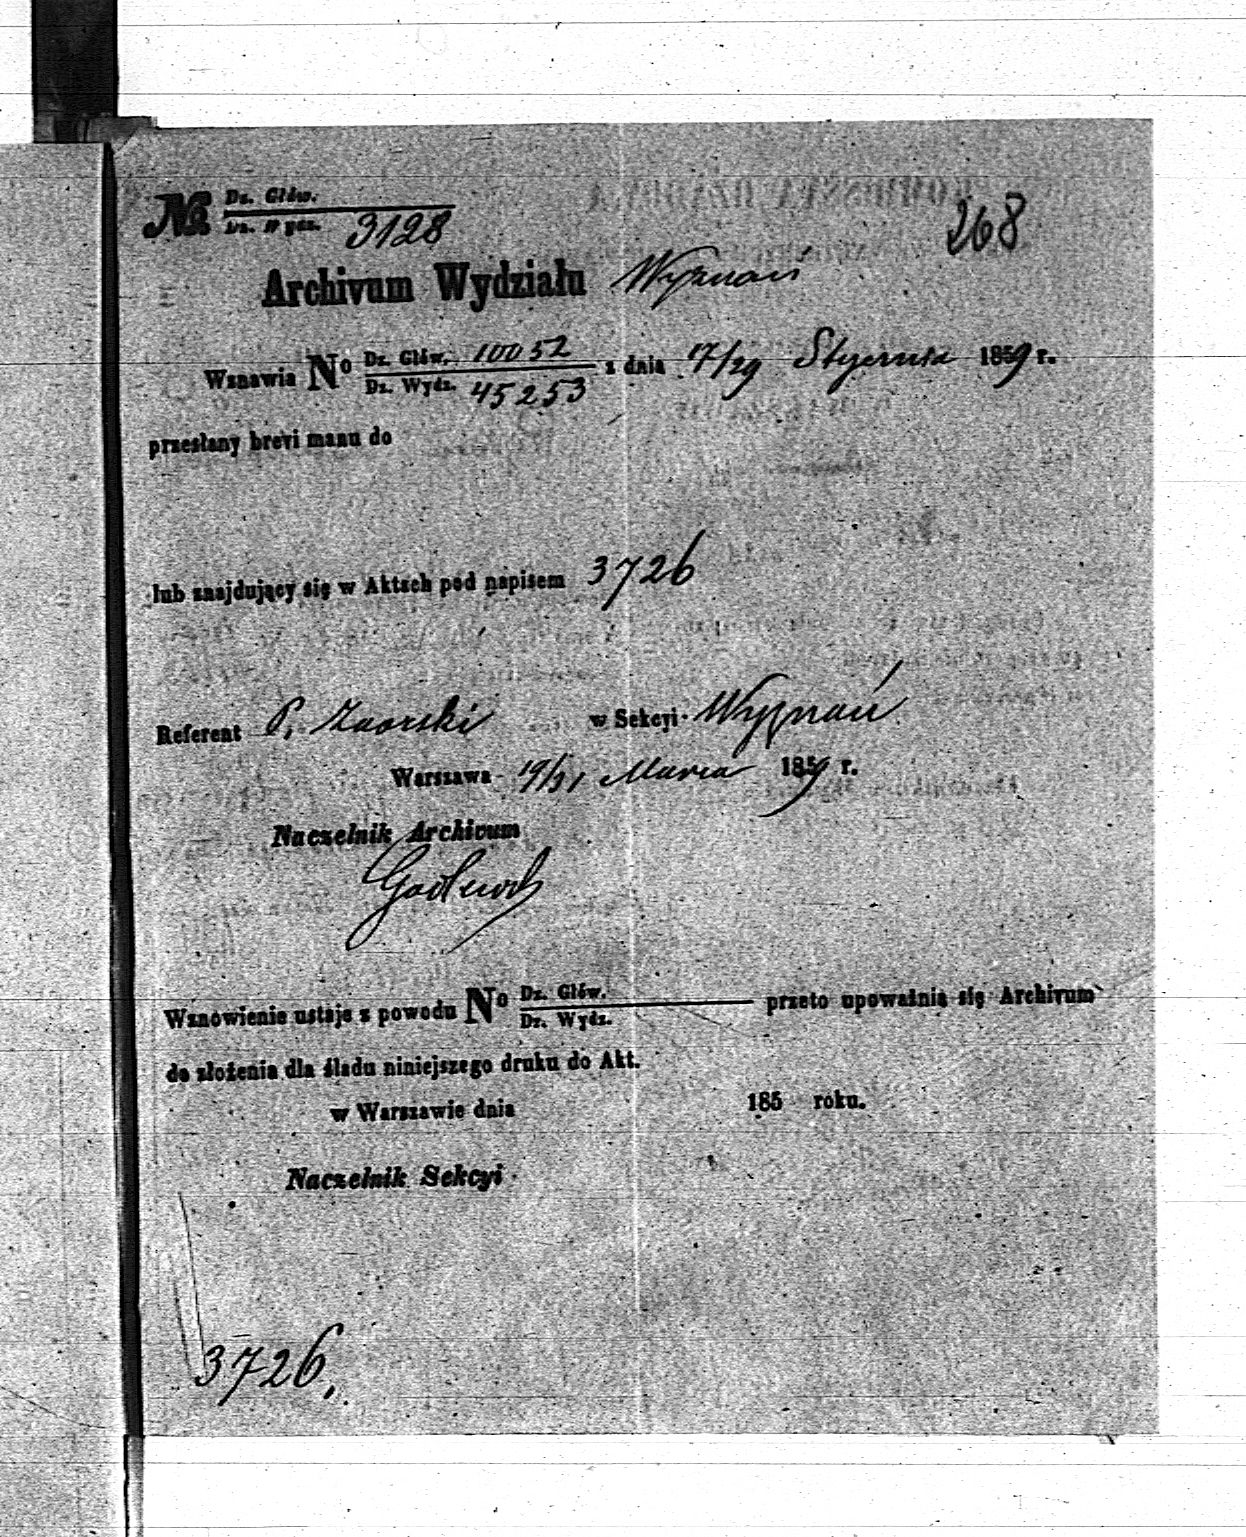 № Dz. Głów.
Dz. Wydz. 3128
268
Archivum Wydziału Wyznań
Wznawia No Dz. Głów. 10052 z dnia 17/29 Stycznia 1859 r.
Dz. Wydz. 45253
przesłany brevi manu do
lub znajdujący się w Aktach pod napisem 3726
Referent P. Zaorski w Sekcyi Wyznań
Warszawa 19/31 Marca 1859 r.
Naczelnik Archivum
Wznowienie ustaje z powodu No Dz. Głów. przeto upoważnia się Archivum
Dz. Wydz.
do złożenia dla śladu niniejszego druku do Akt.
w Warszawie dnia 185 roku.
Naczelnik Sekcyi
3726.